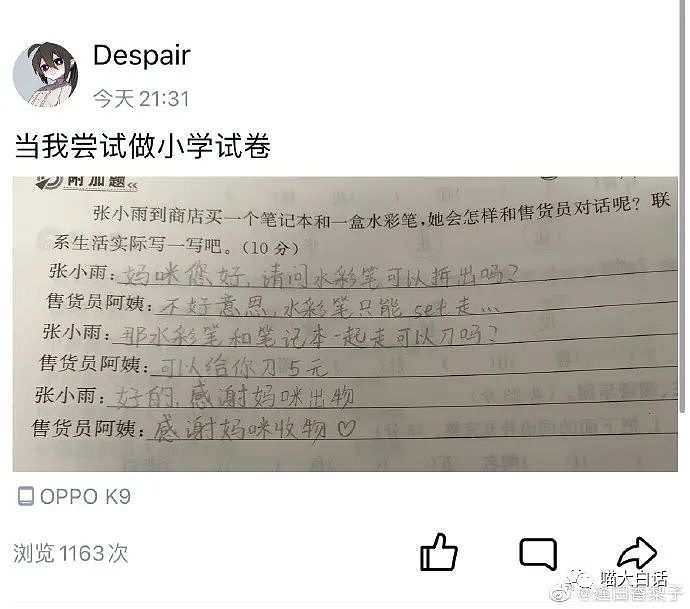 Despair
今天 21:31
当我尝试做小学试卷
附加题
张小雨到商店买一个笔记本和一盒水彩笔,她会怎样和售货员对话呢？联
系生活实际写一写吧。(10分)
张小雨:妈咪您好,请问水彩笔可以拆出吗?
售货员阿姨:不好意思,水彩笔只能set走…
张小雨:那水彩笔和笔记本一起走可以刀吗?
售货员阿姨:可以给你刀5元
张小雨:好的,感谢妈咪出物
售货员阿姨:感谢妈咪收物♡
OPPO K9
浏览1163次
喵大白话